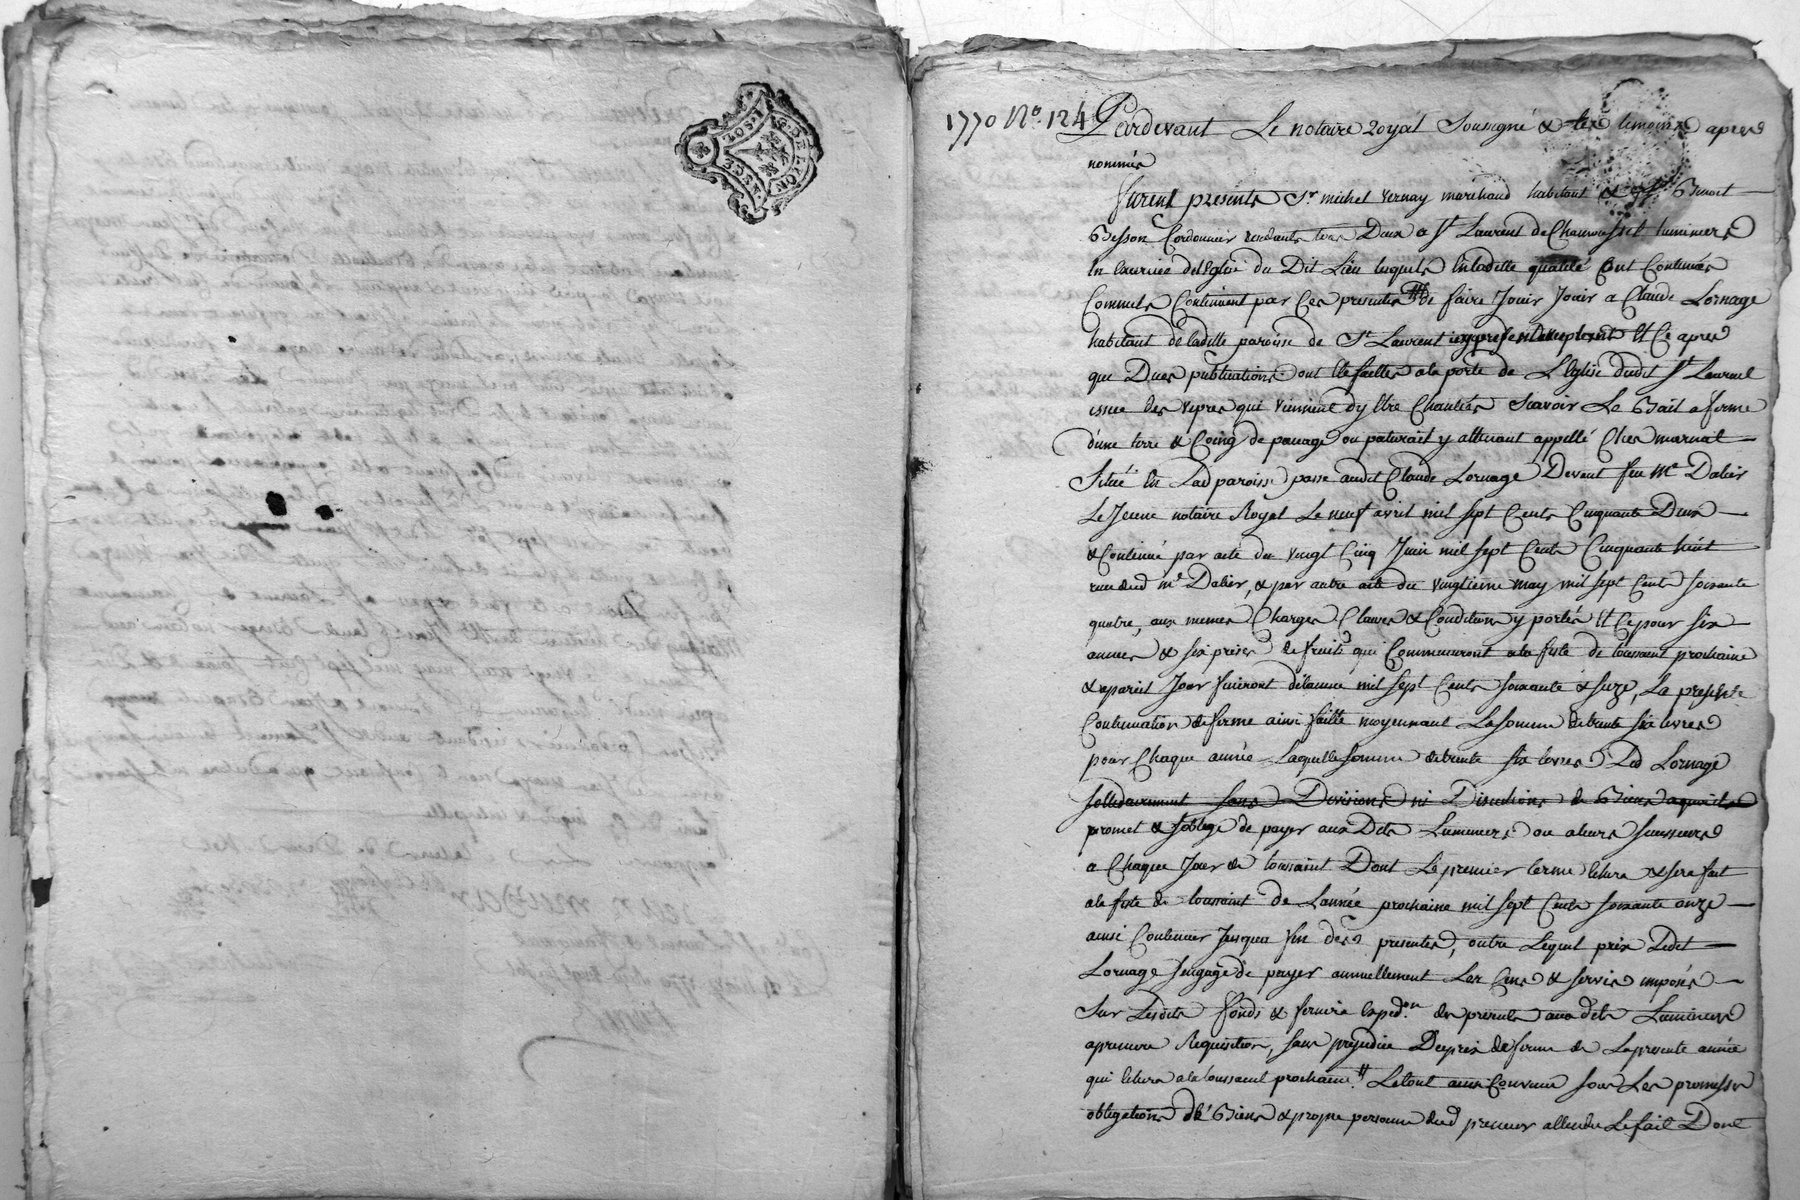 1770 No. 124
Pardevant Le notaire Royal Soussigné & les temoins apres
nommés
furent presents Sr. michel vernay marchand habitant & Sr. Benoit
Besson Cordonnier residants tous Deux a St Laurent de Chamousset luminiers
En l'oeuvre de l'Eglise du Dit Lieu lesquels En laditte qualité Ont Continués
Comme Continuent par Ces presentes de faire Jouir a Claude Lornage
habitant de laditte paroisse de St Laurent icy present acceptant Et Ce apres
que Dues publications ont Ete faittes a la porte de L'Eglise dudit St Laurent
issue des vepres qui viennent d'y Etre Chantées Scavoir Le Bail a ferme
d'une terre & Coing de pacage ou paturail y attenant appellé Ches marnat
Situé En Lad paroisse passe audit Claude Lornage Devant feu Me Dalier
Le Jeune notaire Royal Le neuf avril mil sept Cents Cinquante Deux
& Continué par acte du vingt Cinq Juin mil sept Cents Cinquante huit
recu dud me Dalier, & par autre acte du vingtieme may mil sept Cents soixante
quatre, aux memes Charges Clauses & Conditions y portés Et Ce pour six
années & six prises de fruits que Commenceront a la fete de toussaint prochaine
& a pareil Jour finiront de l'année mil sept Cents soixante & seize, La presente
Continuation de ferme ainsi faitte moyennant La somme de trente six livres
pour Chaque année Laquelle somme de trente six livres Led Lornage
sollidairement sans Divisions ni Discutions de Biens
promet & s'oblige de payer aux Dits Luminiers ou a leurs successeurs
a Chaque Jour de toussaint Dont Le premier terme Echera & sera fait
a la fete de toussaint de L'année prochaine mil sept Cents soixante onze
ainsi Continuer Jusques fin des presentes, outre Lequel prix Ledit
Lornage s'engage de payer annuellement Les Cens & servis imposés
Sur Lesdits fonds & fournir Exped.on des presentes aux dits Luminiers
a premiere Requisition, sans prejudice Du prix de ferme de La presente année
qui Echera a la toussaint prochaine Le tout ainsi Convenu sous Les promesses
obligations de Biens & propre personne dud preneur attendu Le fait Dont